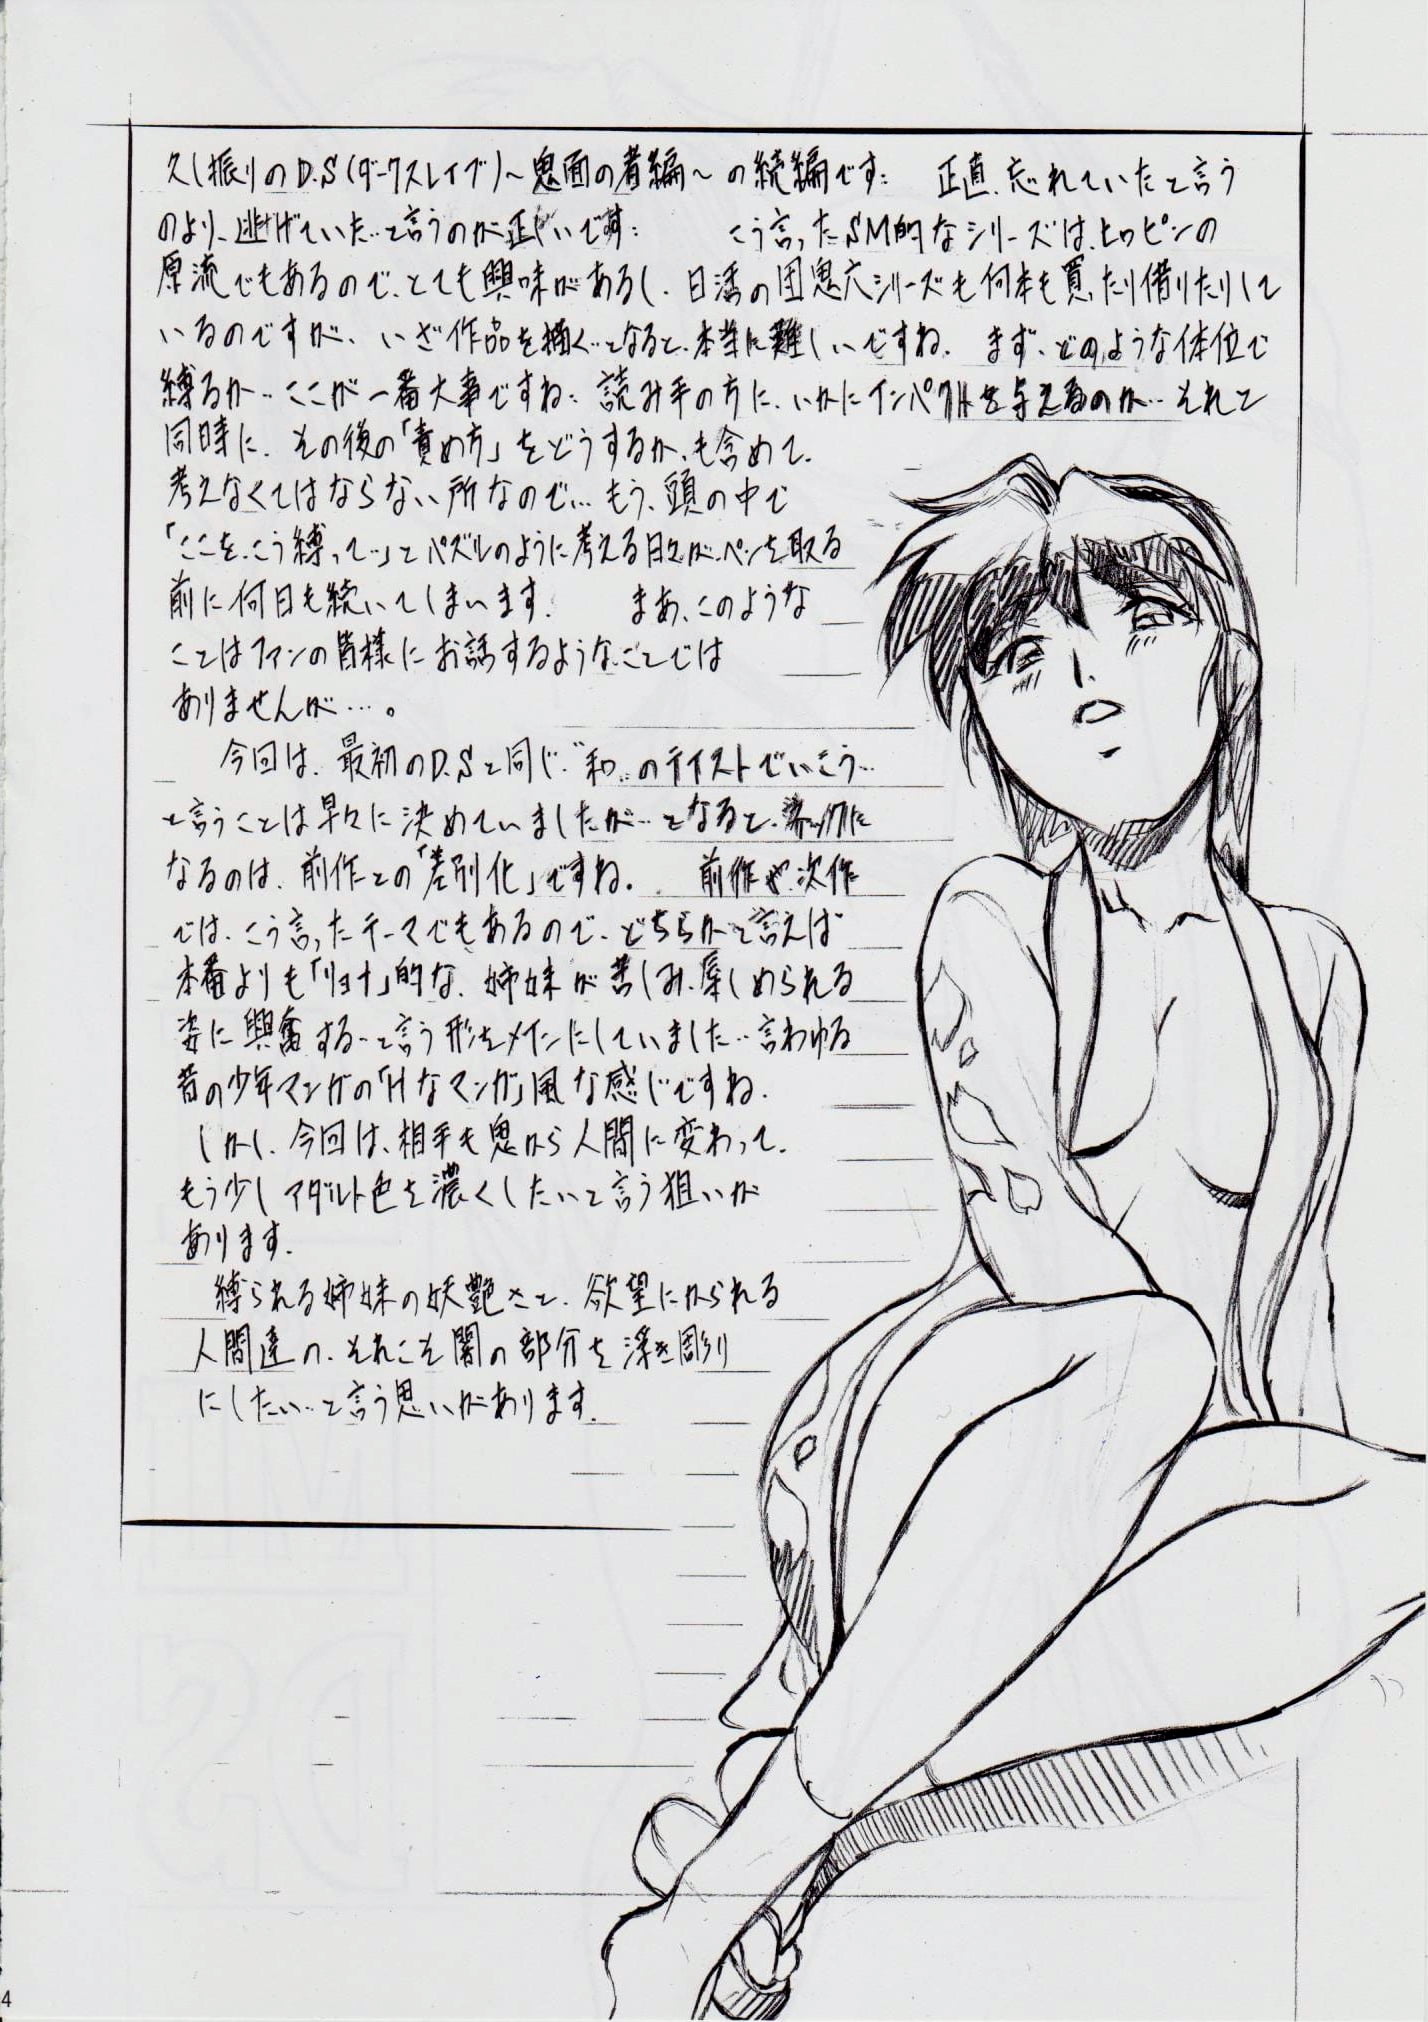 久し振りのD.S(ダークスレイブ)～鬼面の者編～の続編です‥ 正直、忘れていたと言う
のより、逃げていた…と言うのが正しいです‥ こう言ったSM的なシリーズは、ヒロピンの
原流でもあるので、とても興味があるし、日活の団鬼六シリーズも何本も買ったり借りたりして
いるのですが、いざ作品を描く…となると、本当に難しいですね。まず、どのような体位で
縛るか‥ここが一番大事ですね‥読み手の方に、いかにインパクトを与えるのか…それと
同時に、その後の「責め方」をどうするか、も含めて、
考えなくてはならない所なので…もう、頭の中で
「ここを、こう縛って…」とパズルのように考える日々が、ペンを取る
前に何日も続いてしまいます。 まあ、このような
ことはファンの皆様にお話するようなことでは
ありませんが…。
今回は、最初のD.Sと同じ、“和”のテイストでいこう…
と言うことは早々に決めていましたが…となると、ネックに
なるのは、前作との「差別化」ですね。 前作や次作
では、こう言ったテーマでもあるので、どちらかと言えば
本番よりも「リョナ」的な、姉妹が苦しみ、辱しめられる
姿に興奮する…と言う形をメインにしていました…言わゆる
昔の少年マンガの「Hなマンガ」風な感じですね。
しかし、今回は、相手も鬼から人間に変わって、
もう少しアダルト色を濃くしたいと言う狙いが
あります。
縛られる姉妹の妖艶さと、欲望にかられる
人間達の、それこそ闇の部分を浮き彫り
にしたい…と言う思いがあります。
4